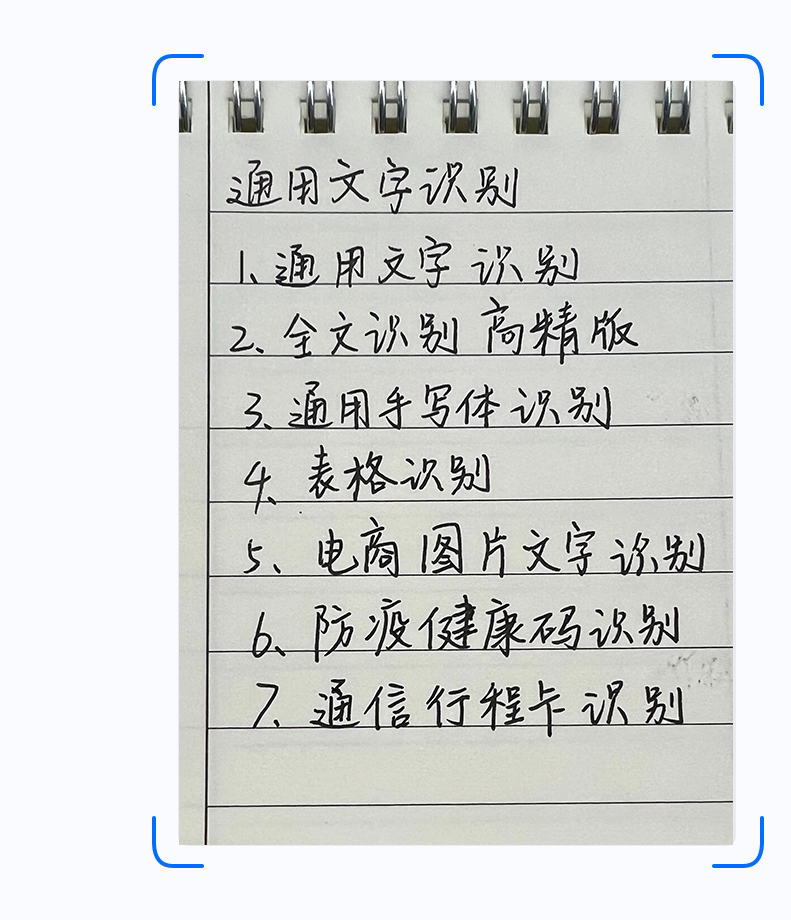 通用文字识别
1、通用文字识别
2、全文识别 高精版
3、通用手写体识别
4、表格识别
5、电商图片文字识别
6、防疫健康码识别
7、通信行程卡识别